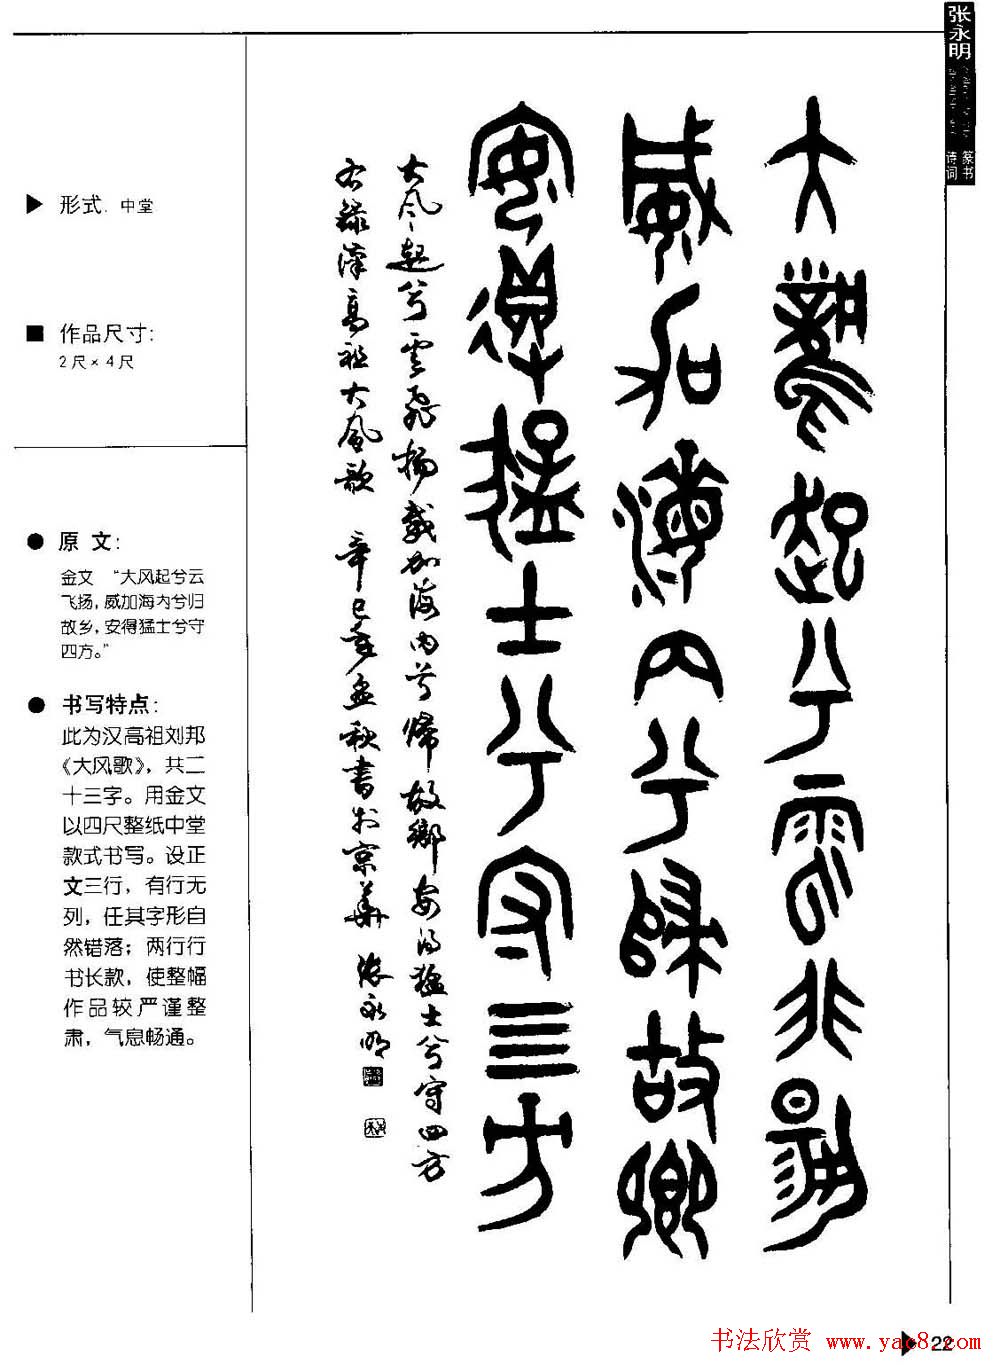 张永明
篆书
诗词
▶ 形式. 中堂
■ 作品尺寸:
2尺×4尺
● 原 文:
金文 “大风起兮云
飞扬，威加海内兮归
故乡，安得猛士兮守
四方。”
● 书写特点:
此为汉高祖刘邦
《大风歌》，共二
十三字。用金文
以四尺整纸中堂
款式书写。设正
文三行，有行无
列，任其字形自
然错落；两行行
书长款，使整幅
作品较严谨整
肃，气息畅通。
大風起兮雲非揚
威加海内兮歸故鄉
安得猛士兮守三方
大风起兮雲飛揚威加海内兮歸故鄉安得猛士兮守四方
右錄漢高祖大風歌 辛巳年孟秋書於京華 張永明
书法欣赏 www.yac8.com
22